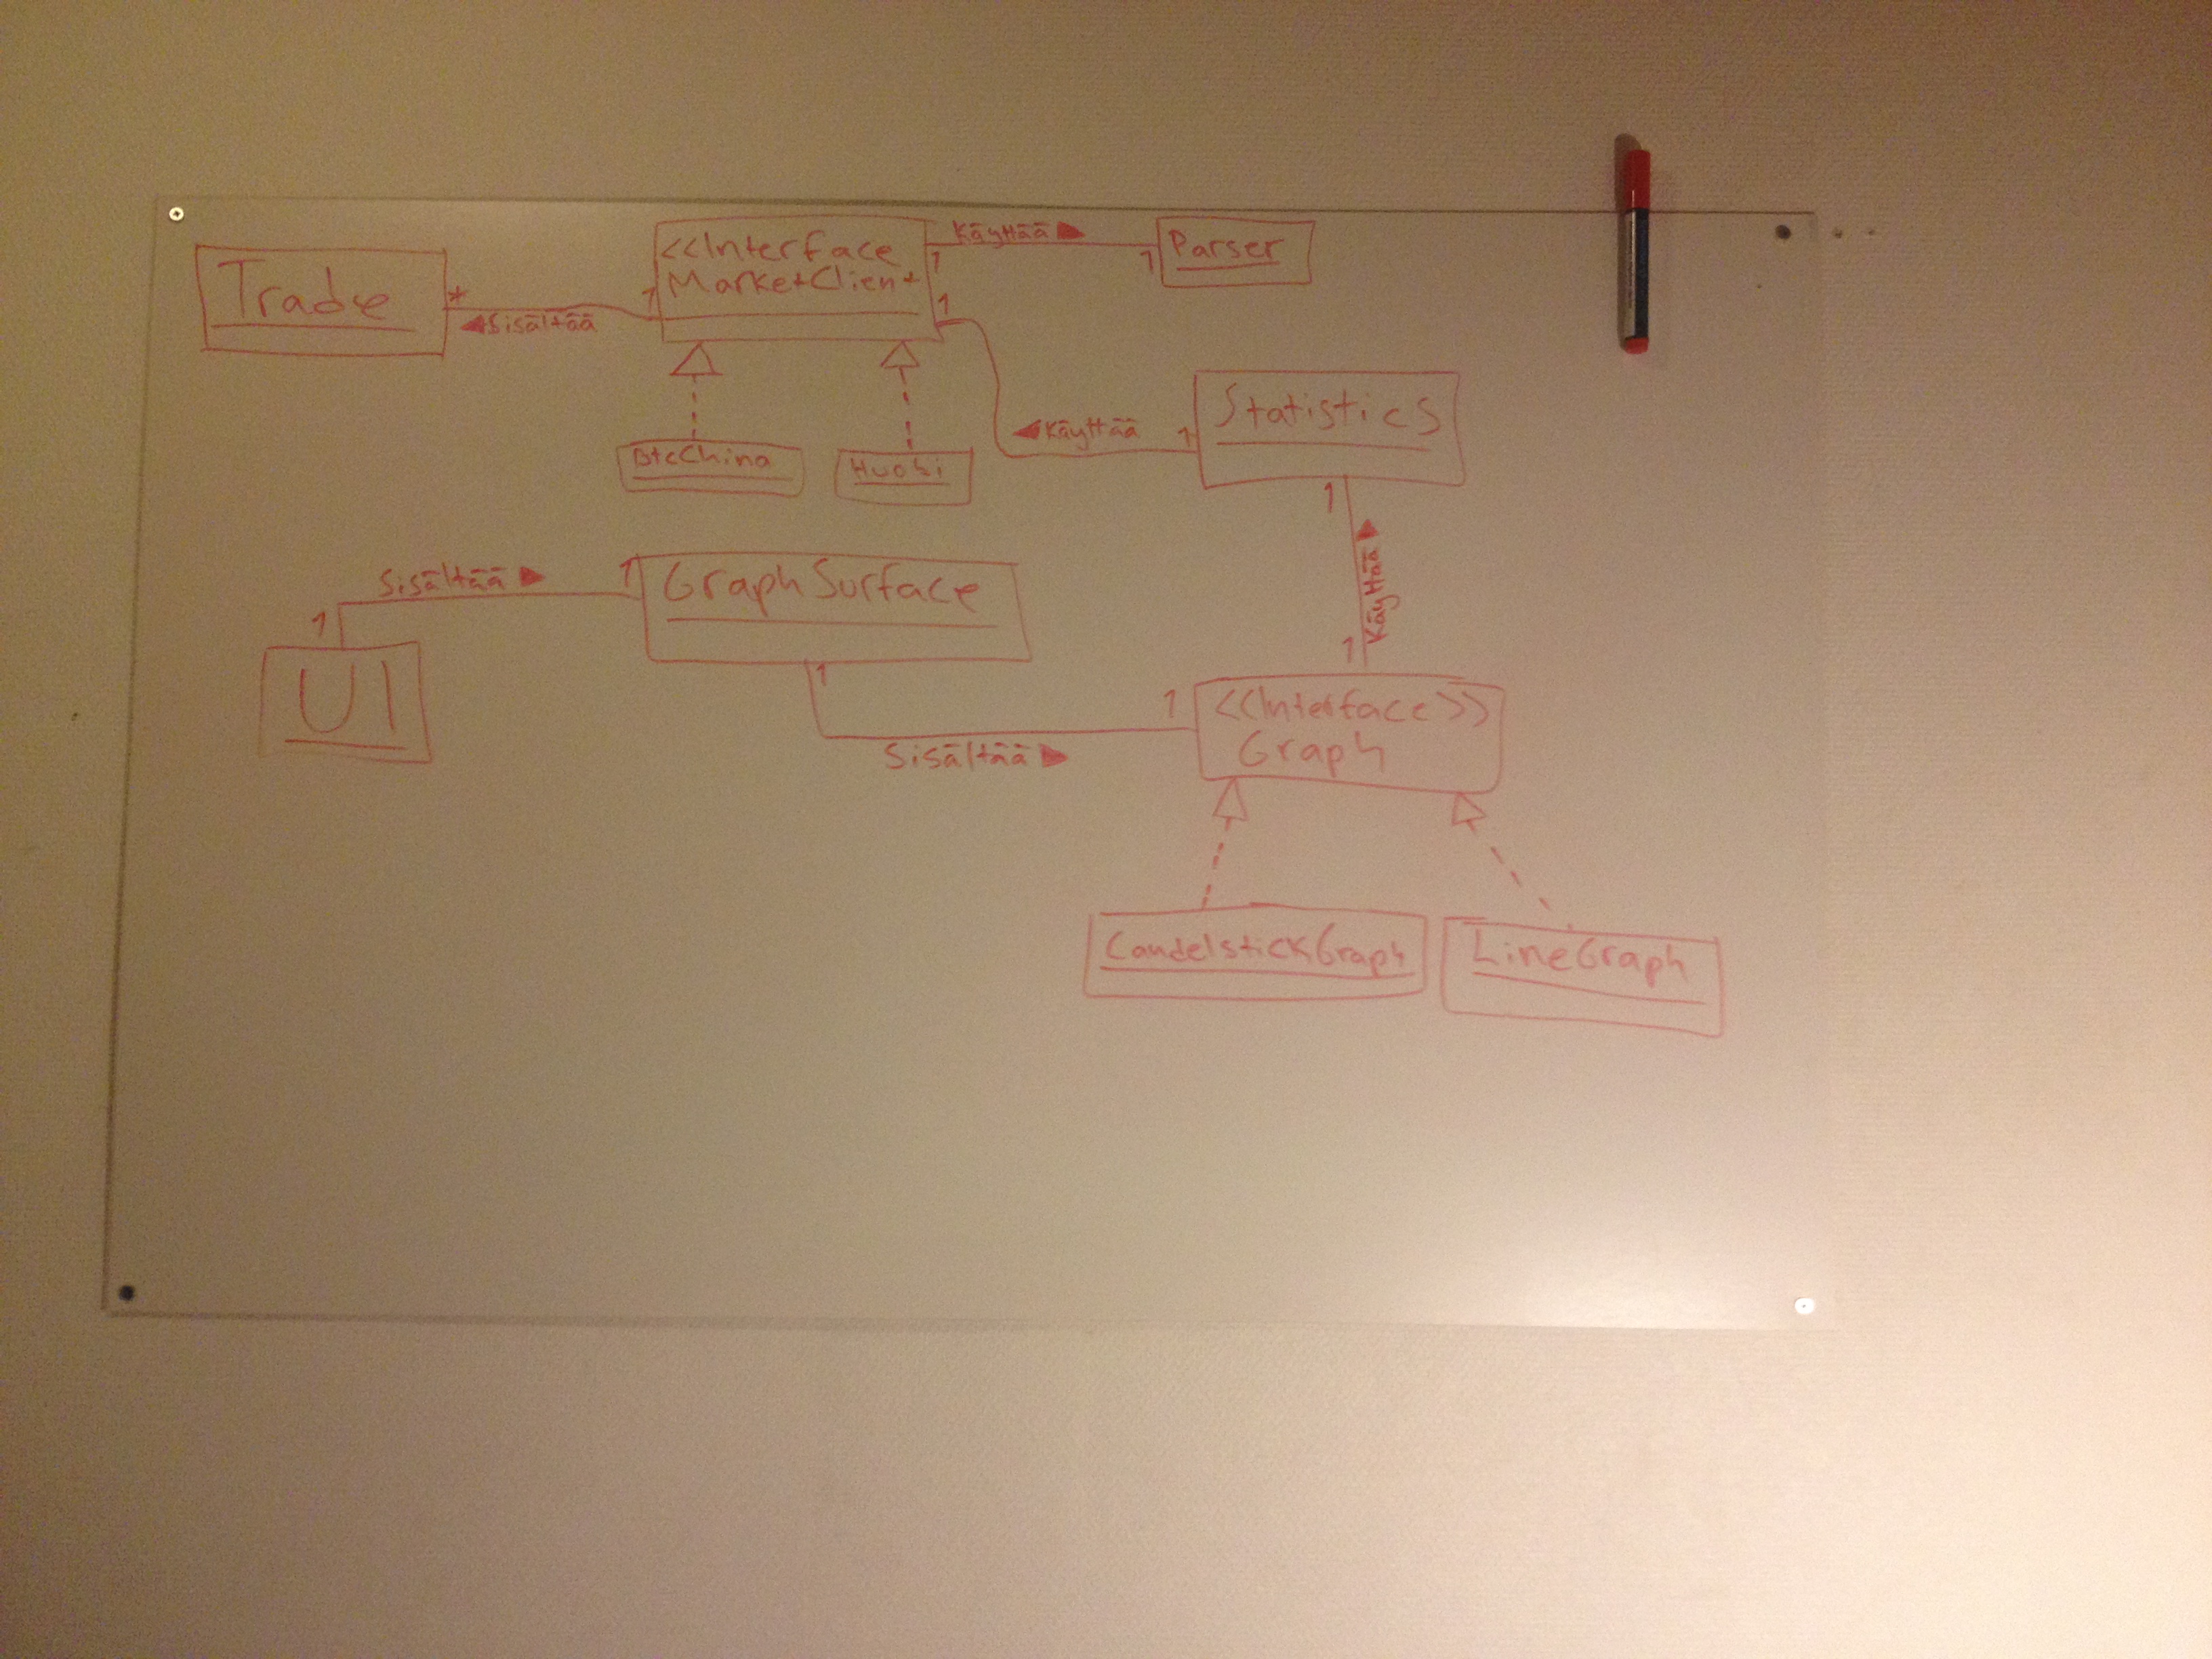 Trade
*
◀ Sisältää
1
<<Interface
MarketClient
1
Käyttää ▶
1
Parser
1
BtcChina
Huobi
◀ Käyttää
1
Statistics
1
Käyttää ▶
1
Sisältää ▶
1
1
UI
GraphSurface
1
Sisältää ▶
1
<<Interface>>
Graph
CandelstickGraph
LineGraph